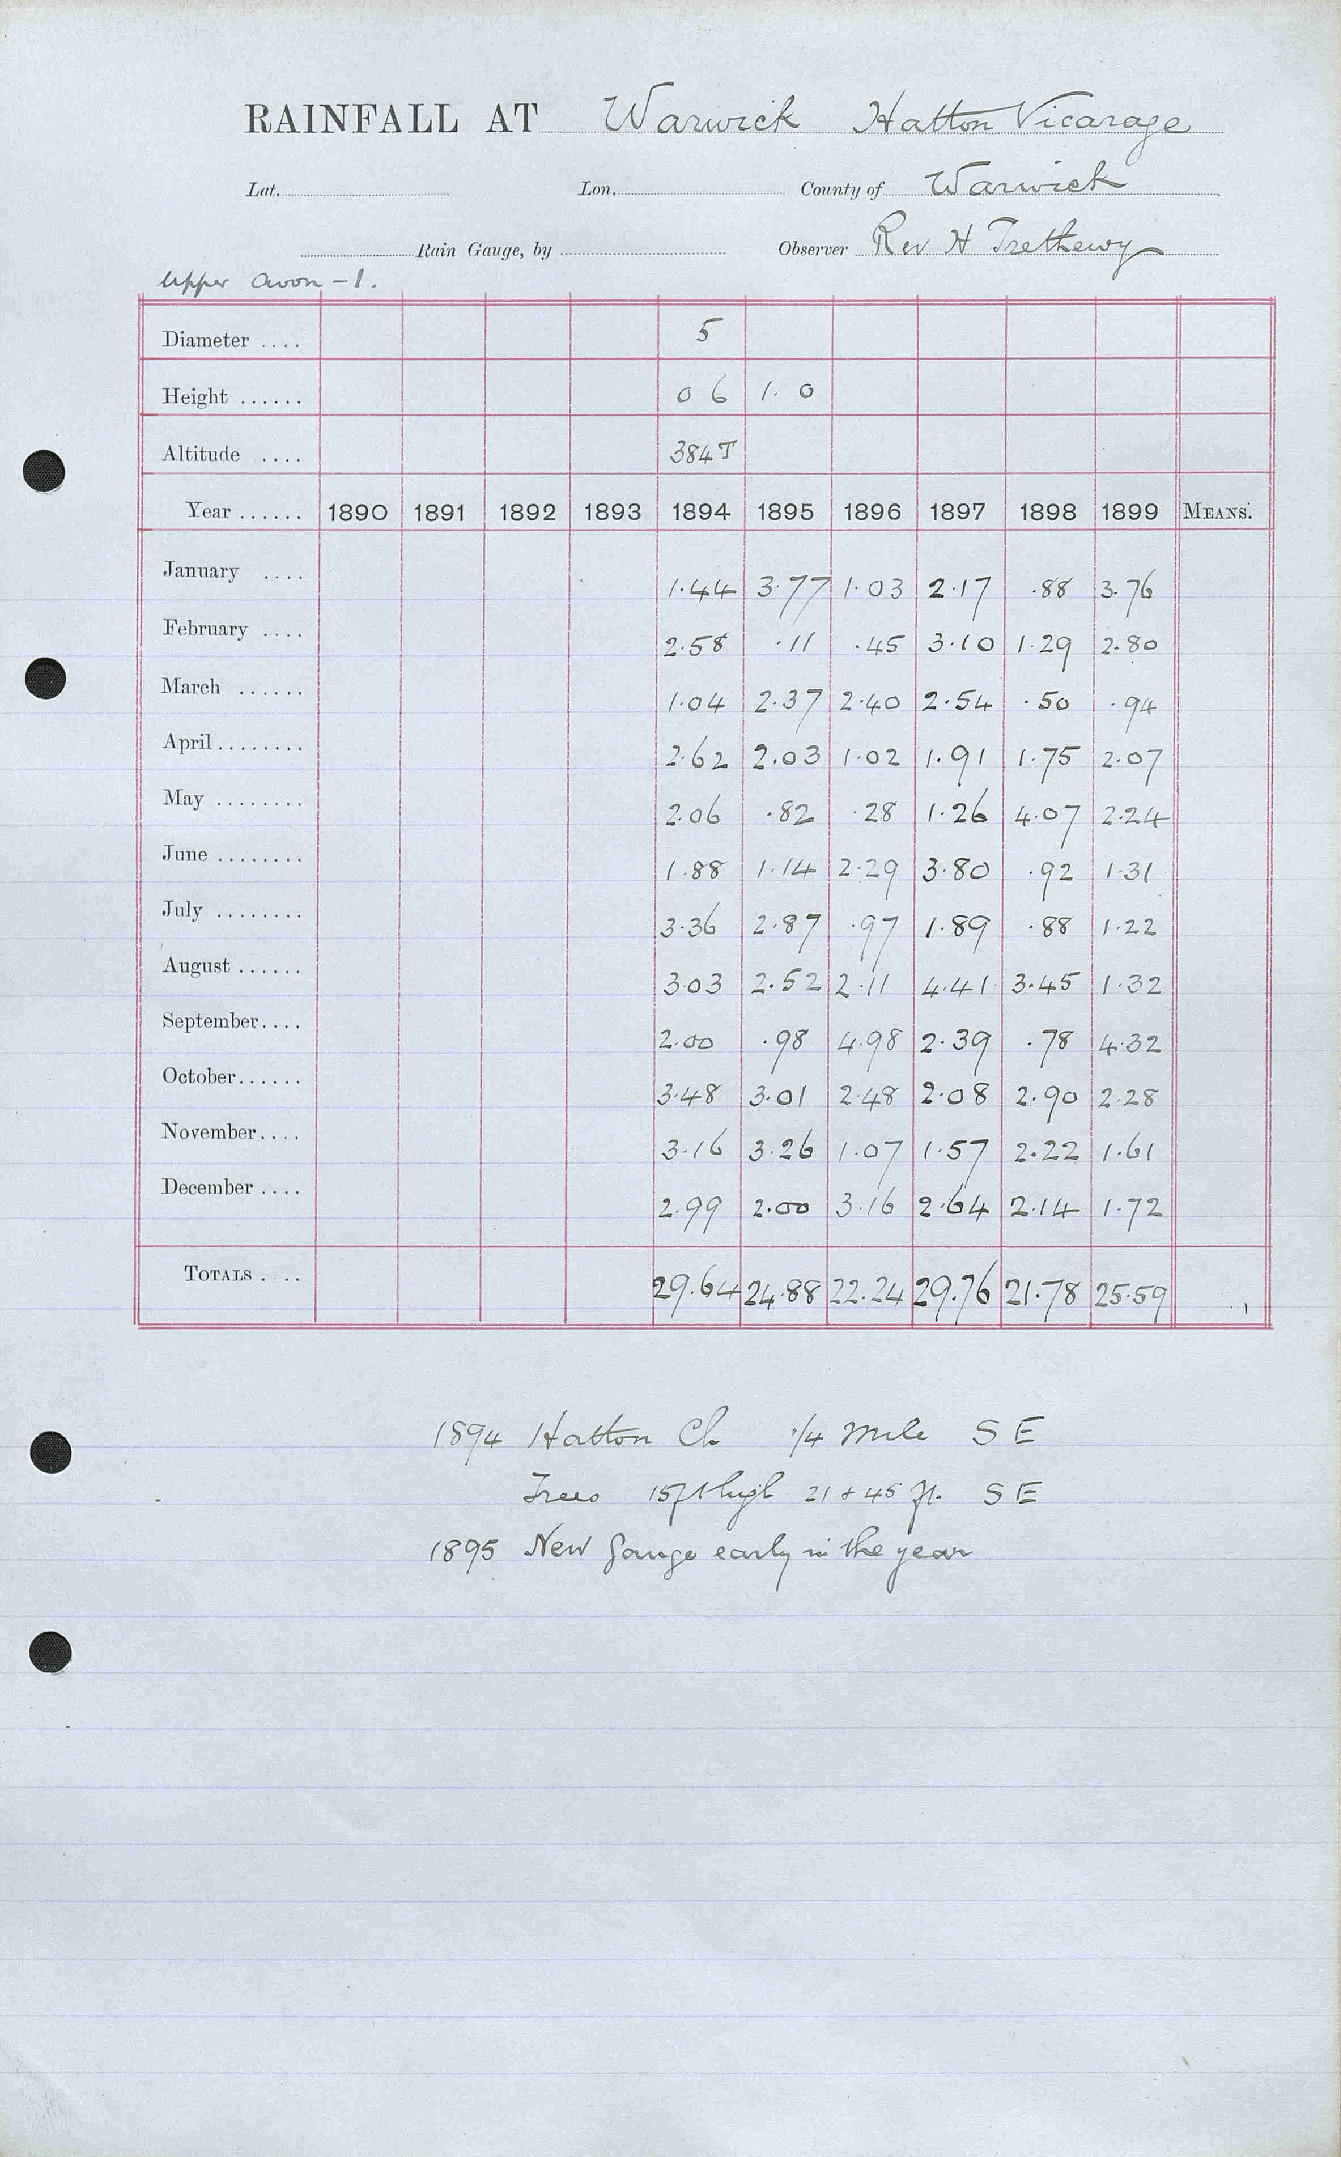 RAINFALL AT Warwick Hatton Vicarage
Lat. Lon. County of Warwick
Rain Gauge, by Observer Rev H Trethewy
Upper Avon - 1.
Diameter .... 5
Height ...... 0 6 1. 0
Altitude .... 384 T
Year ...... 1890 1891 1892 1893 1894 1895 1896 1897 1898 1899 MEANS.
January .... 1.44 3.77 1.03 2.17 .88 3.76
February .... 2.58 .11 .45 3.10 1.29 2.80
March ...... 1.04 2.37 2.40 2.54 .50 .94
April ........ 2.62 2.03 1.02 1.91 1.75 2.07
May ........ 2.06 .82 .28 1.26 4.07 2.24
June ........ 1.88 1.14 2.29 3.80 .92 1.31
July ........ 3.36 2.87 .97 1.89 .88 1.22
August ...... 3.03 2.52 2.11 4.41 3.45 1.32
September.... 2.00 .98 4.98 2.39 .78 4.32
October...... 3.48 3.01 2.48 2.08 2.90 2.28
November.... 3.16 3.26 1.07 1.57 2.22 1.61
December .... 2.99 2.00 3.16 2.64 2.14 1.72
TOTALS .... 29.64 24.88 22.24 29.76 21.78 25.59
1894 Hatton Ch. 1/4 mile S E
Trees 15ft high 21 + 45 ft. S E
1895 New Gauge early in the year